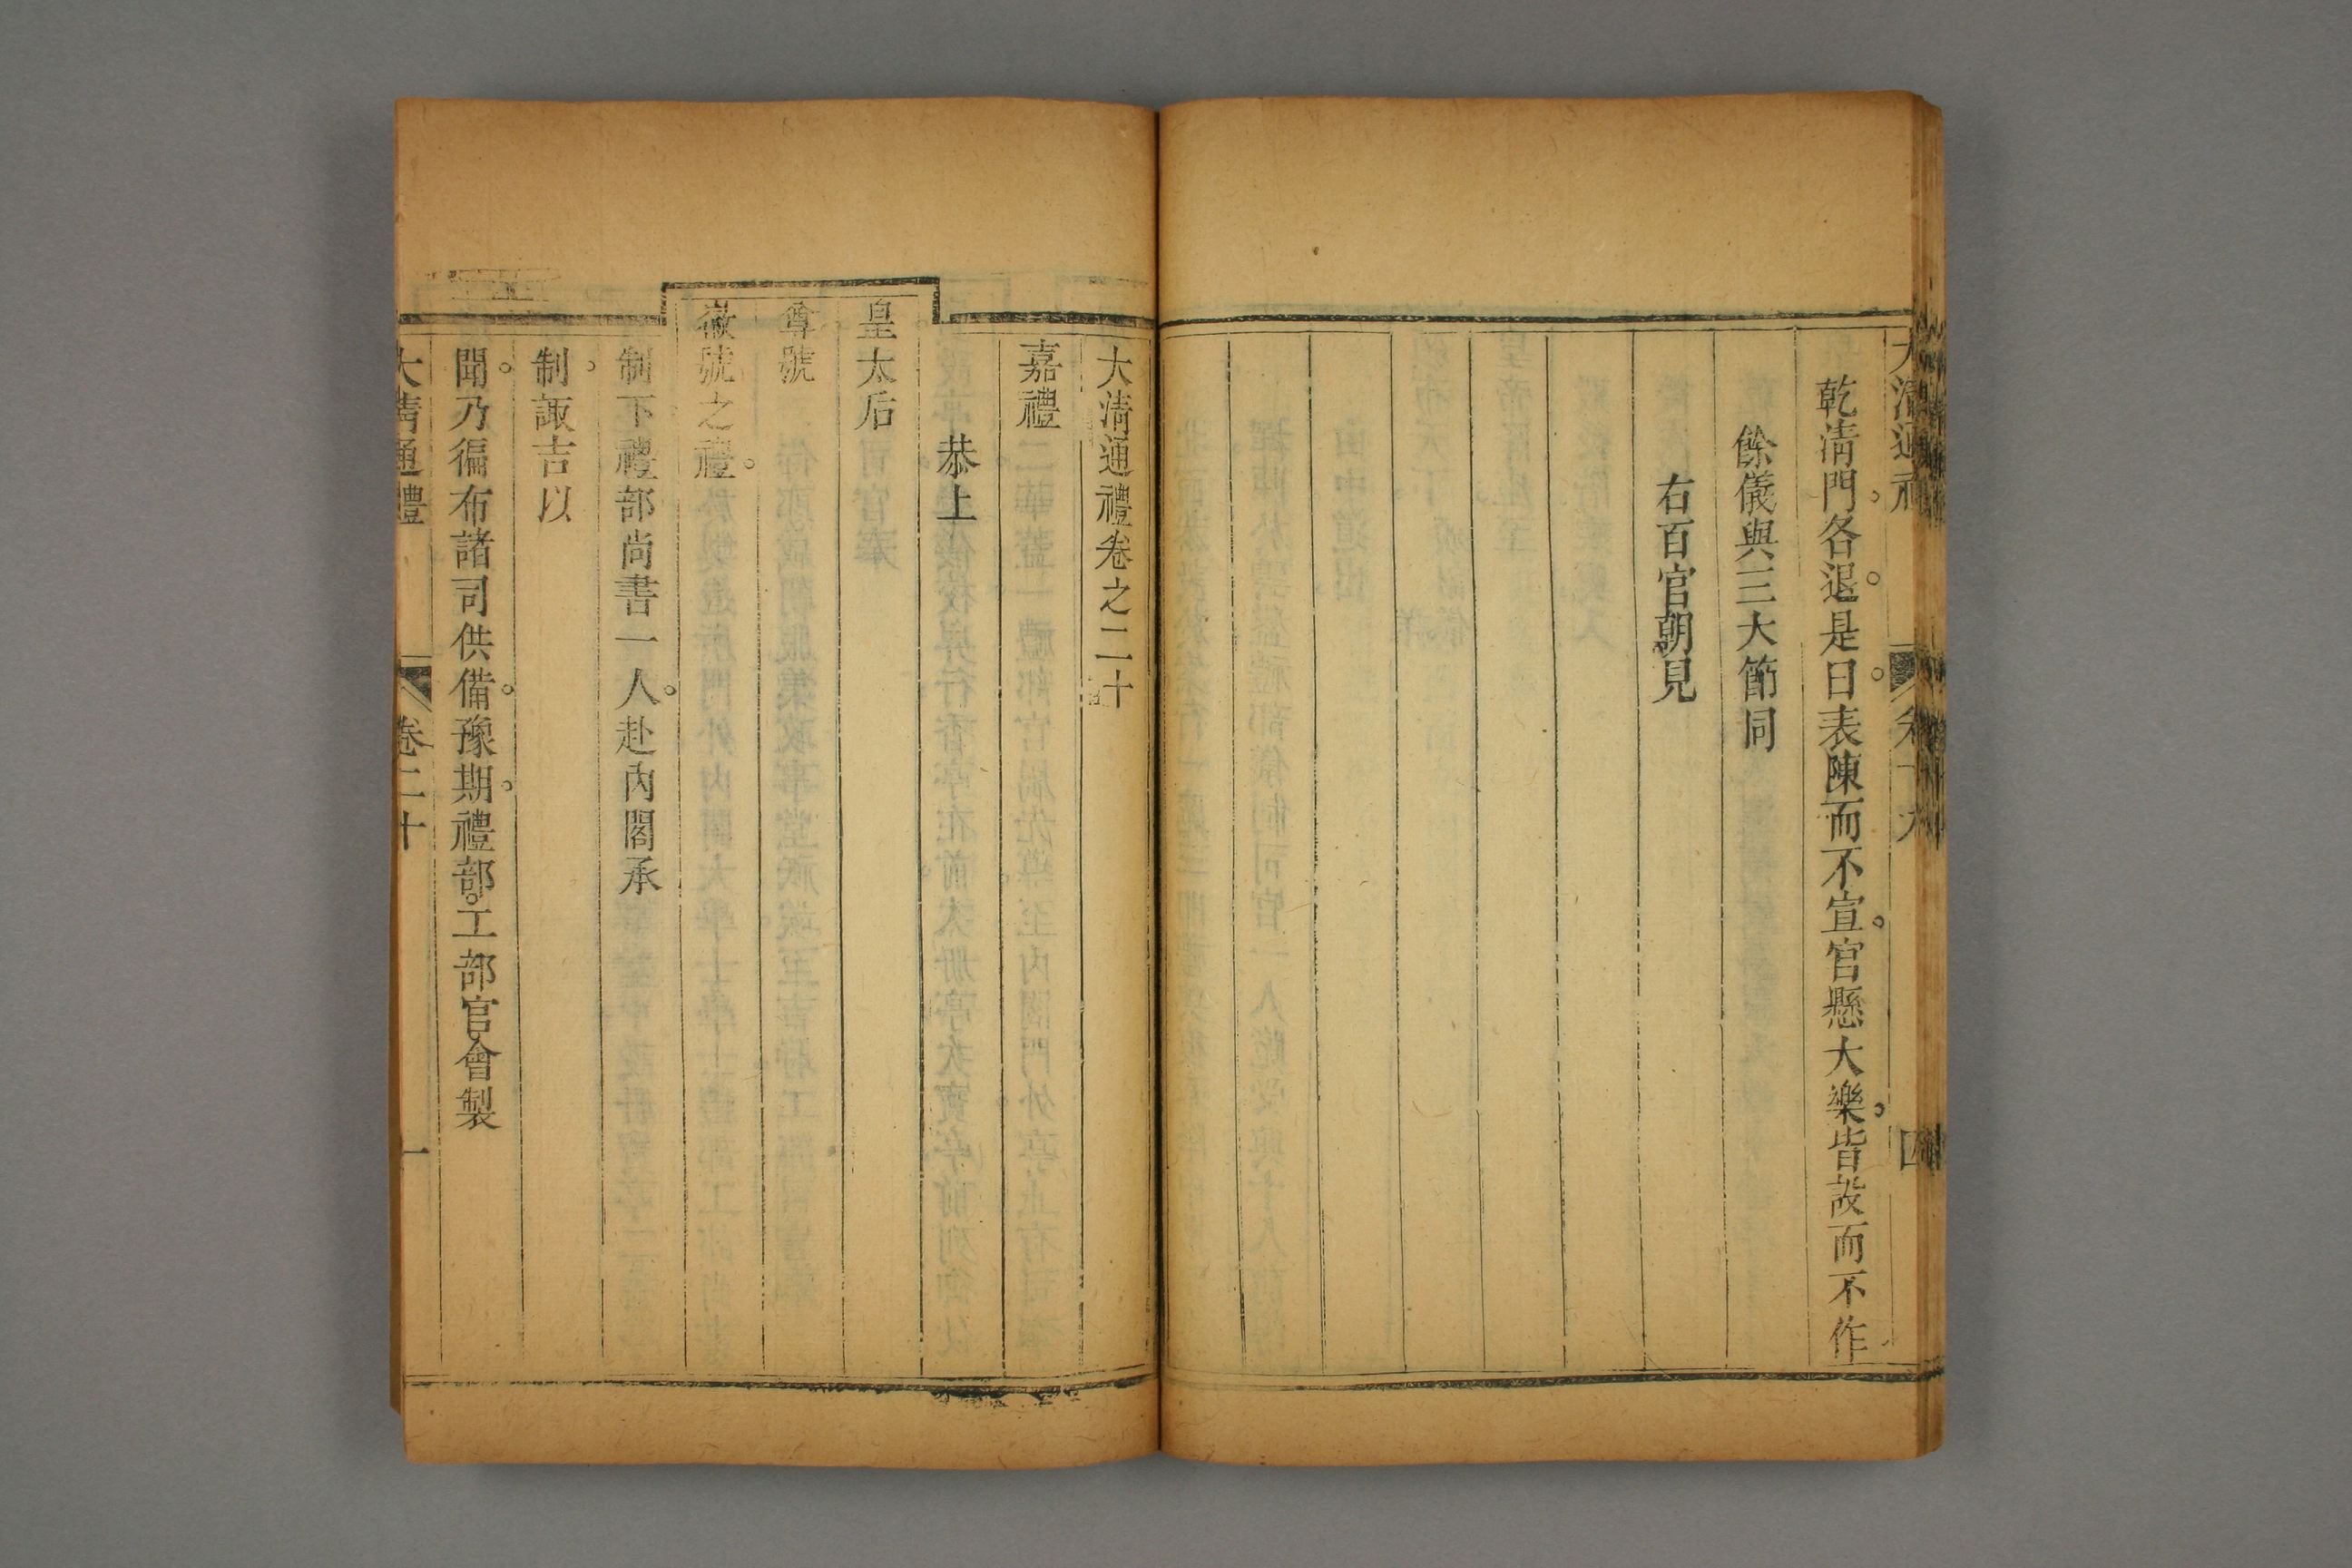 乾淸門。各退。是日。表陳而不宣。官懸大樂。皆設而不作
餘儀與三大節同
右百官朝見
大淸通禮卷之二十
嘉禮
恭上
皇太后
尊號
徽號之禮。
制下禮部尚書一人。赴內閣承
制。諏吉以
聞。乃徧布諸司供備。豫期。禮部。工部官會製
大淸通禮
卷二十
一